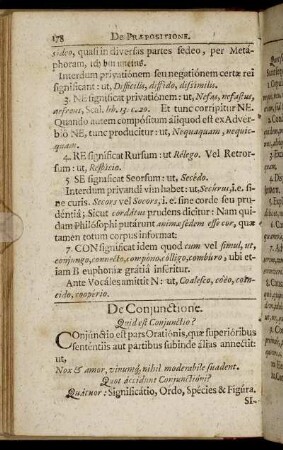 178 DE PRÆPOSITIONE.
sideo, quasi in diversas partes sedeo, per Metaphoram, ich bin uneins.
Interdum privatiónem seu negatiónem certæ rei
significant: ut, Difficilis, diffido, dissimilis.
3. NE significat privatiónem: ut, Nefas, nefastus,
Et tunc corripitur NE.
Quando autem compósitum áliquod est ex Adverbio
NE, tunc producitur: ut, Nequaquam, nequicquam.
4. RE significat Rursum: ut Rélego. Vel Retrorsum: ut,
5 SE significat Seorsum: ut, Secédo.
Interdum privandi vim habet: ut, Secúrus, i.e. sine
curis. Secors vel Socors, i. e. sine corde seu prudéntiâ;
Sicut cordátus prudens dícitur: Nam quidam
Philósophi putárunt animæ sedem esse cor, quæ
tamen totum corpus informat.
7. CON significat idem quod cum vel simul, ut,
conjungo, convoco, compono, cólligo, combúro; ubi etiam
B euphoniæ grátiâ inséritur.
Ante Vocáles amittit N: ut, Coalesco, coëo, coincido,
coopério.
De Conjunctione.
Quid est Conjunctio?
Conjúnctio est pars Oratiónis, quæ superióribus
senténtiis aut pártibus subinde álias annectit:
ut,
Nox & amor, vinumq́, nihil moderabile suadent.
Quot áccidunt Conjunctióni?
Quátuor: Significátio, Ordo, Spécies & Figúra.
SI-